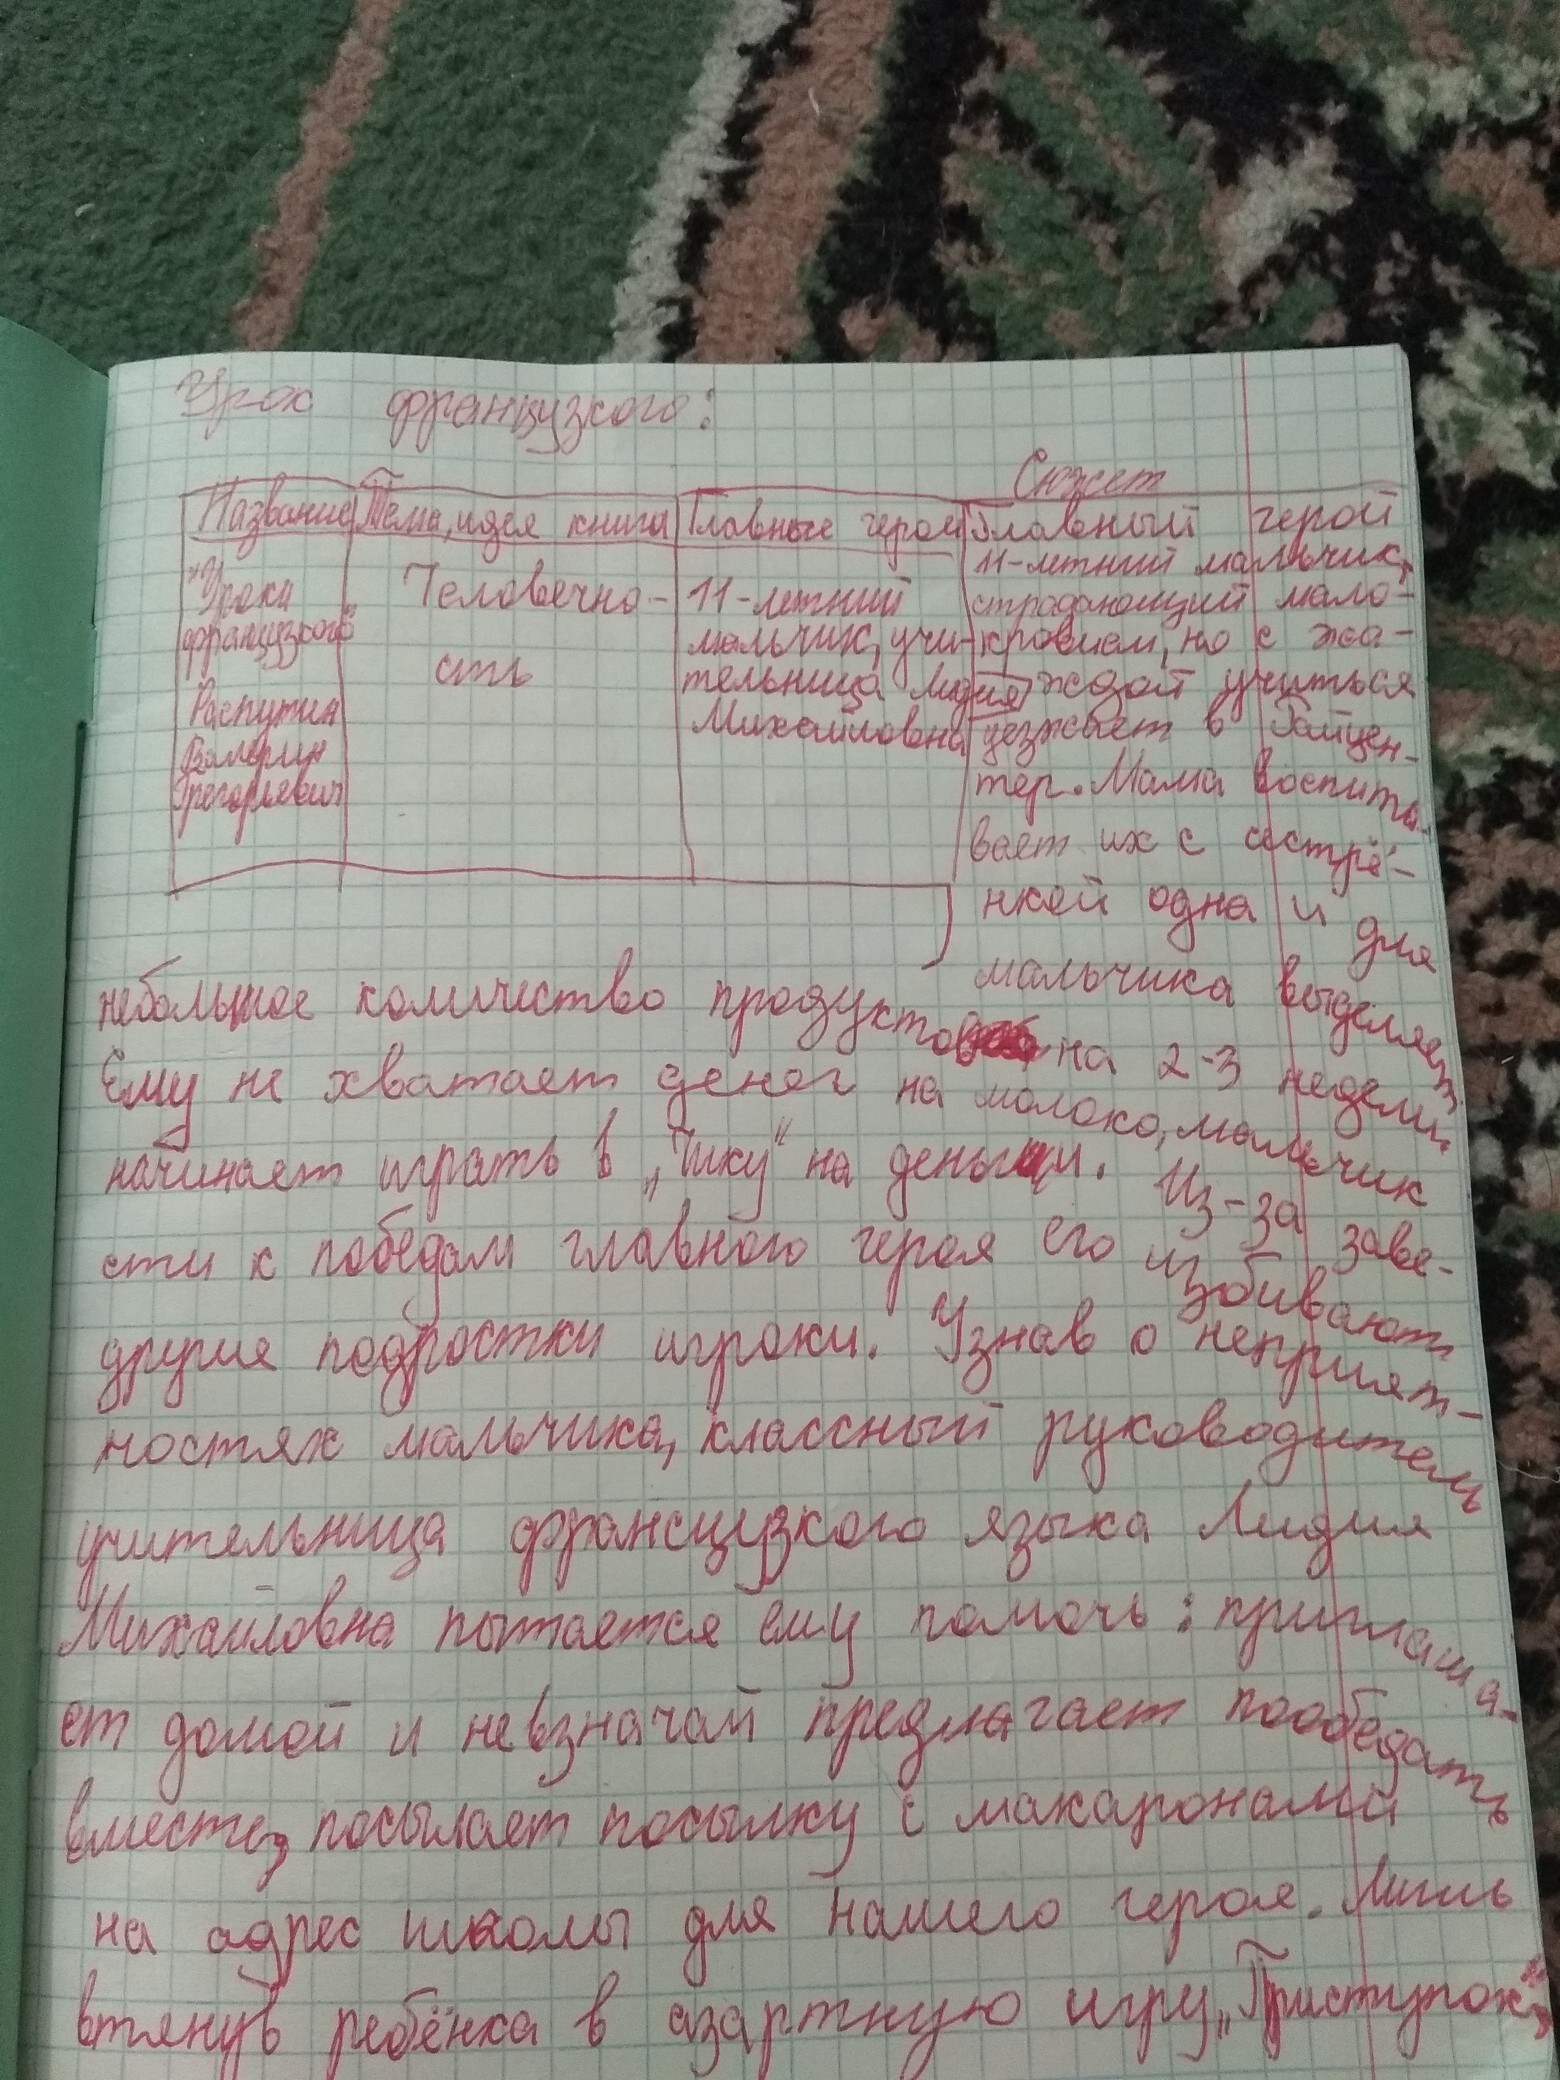 Урок французкого:
Сюжет
Название
Тема, идея книга
Главные герои
"Уроки
французкого"
Распутин
Валерин
Грегорьевич
Человечно-
сть
11-летний
мальчик, учи-
тельница Лидия
Михайловна
Главный герой
11-летний мальчик,
страдающий мало-
кровием, но с жа-
ждой учиться
уезжает в Райцен-
тер. Мама воспиты-
вает их с сестрё-
нкой одна и для
мальчика выделяет
небольшое количество продуктов на 2-3 недели.
Ему не хватает денег на молоко, мальчик
начинает играть в „Чику" на деньги. Из-за заве-
сти к победам главного героя его избивают
другие подростки игроки. Узнав о неприят-
ностях мальчика, классный руководитель
учительница франсцузкого языка Лидия
Михайловна пытается ему помочь: приглаша-
ет домой и невзначай предлагает пообедать
вместе, посылает посылку с макаронами
на адрес школы для нашего героя. Лишь
втянув ребёнка в азартную игру „Приступок",